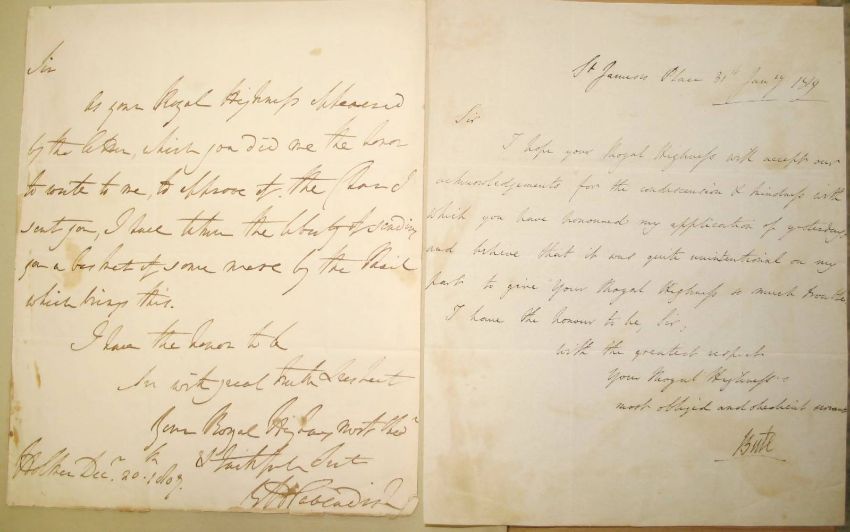 Sir
As your Royal Highness appeared
by the letter, which you did me the honor
to write to me, to approve of the Char I
sent you, I have taken the liberty of sending
you a basket of some more by the Mail
which brings this.
I have the honor to be
Sir with great truth & respect
Your Royal Highness most
& faithful Sert
Holker Decr. 20th. 1807.
Cavendish
St. James's Place 31st Jany 1819
Sir
I hope your Royal Highness will accept our
acknowledgements for the condescension & kindness with
which you have honoured my application of yesterday,
and believe that it was quite unintentional on my
part to give Your Royal Highness so much trouble
I have the honour to be, Sir,
with the greatest respect
Your Royal Highness's
most obliged and obedient servant
Bute